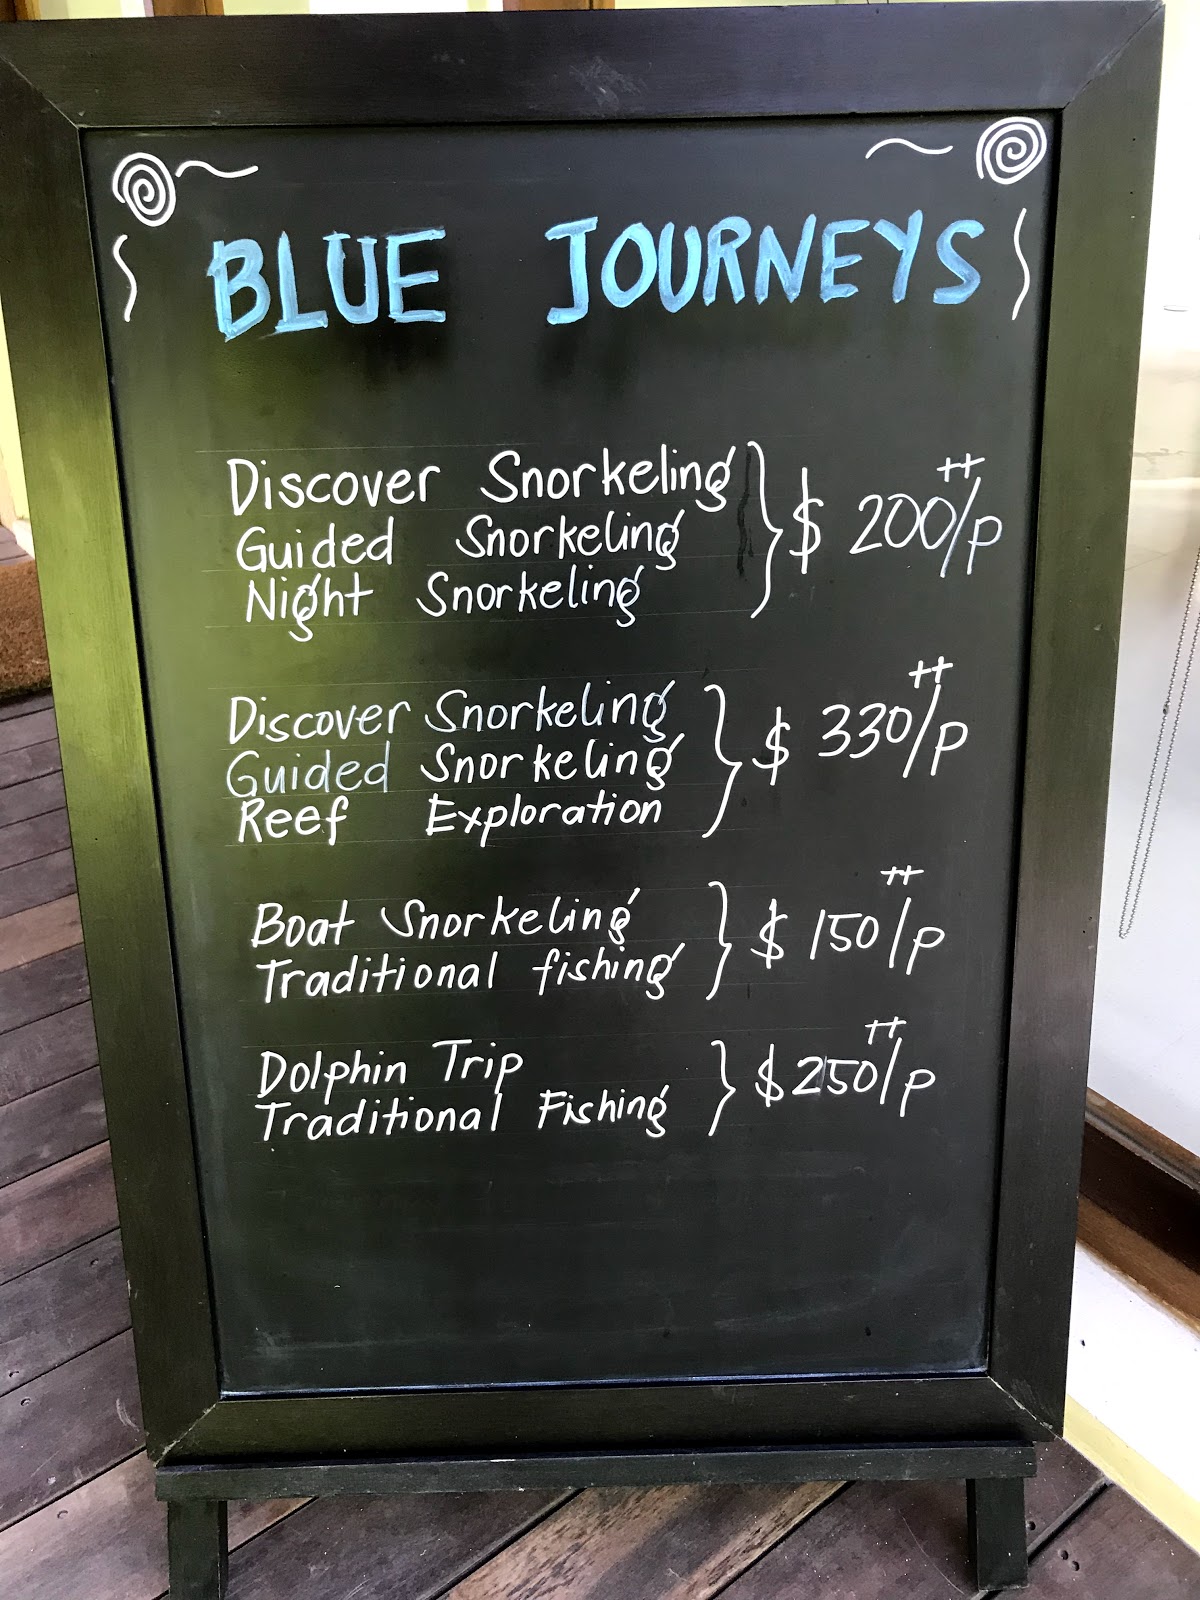 BLUE JOURNEYS
Discover Snorkeling
Guided Snorkeling
Night Snorkeling
$ 200++/p
Discover Snorkeling
Guided Snorkeling
Reef Exploration
$ 330++/p
Boat Snorkeling
Traditional fishing
$ 150++/p
Dolphin Trip
Traditional Fishing
$ 250++/p